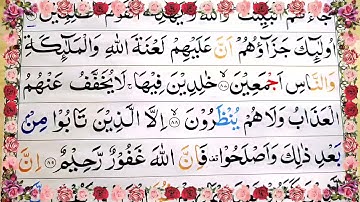 جَآءَهُمُ الْبَيِّنٰتُ وَاللّٰهُ لَا يَهْدِى الْقَوْمَ الظّٰلِمِيْنَ
اُولٰٓئِكَ جَزَآؤُهُمْ اَنَّ عَلَيْهِمْ لَعْنَةَ اللّٰهِ وَالْمَلٰٓئِكَةِ
وَالنَّاسِ اَجْمَعِيْنَ ۙ۝۸۷ خٰلِدِيْنَ فِيْهَا ۚ لَا يُخَفَّفُ عَنْهُمُ
الْعَذَابُ وَلَا هُمْ يُنْظَرُوْنَ ۙ۝۸۸ اِلَّا الَّذِيْنَ تَابُوْا مِنْۢ
بَعْدِ ذٰلِكَ وَاَصْلَحُوْا ۫ فَاِنَّ اللّٰهَ غَفُوْرٌ رَّحِيْمٌ ۝۸۹ اِنَّ